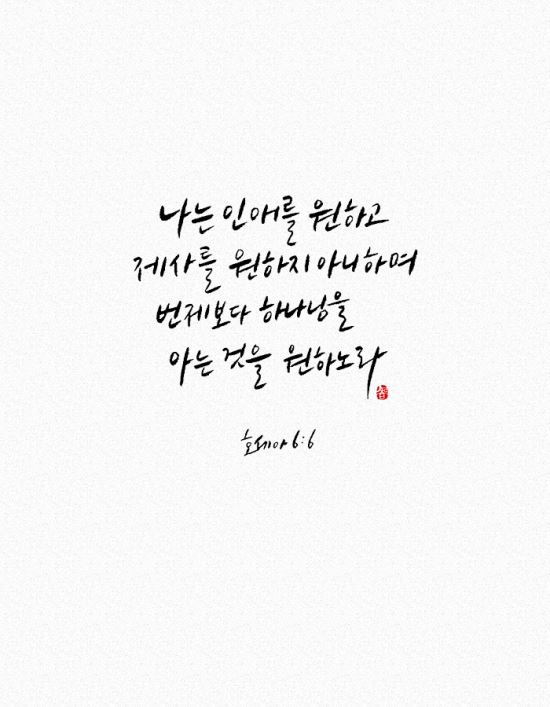 나는 인애를 원하고
제사를 원하지 아니하며
번제보다 하나님을
아는 것을 원하노라
호세아 6:6